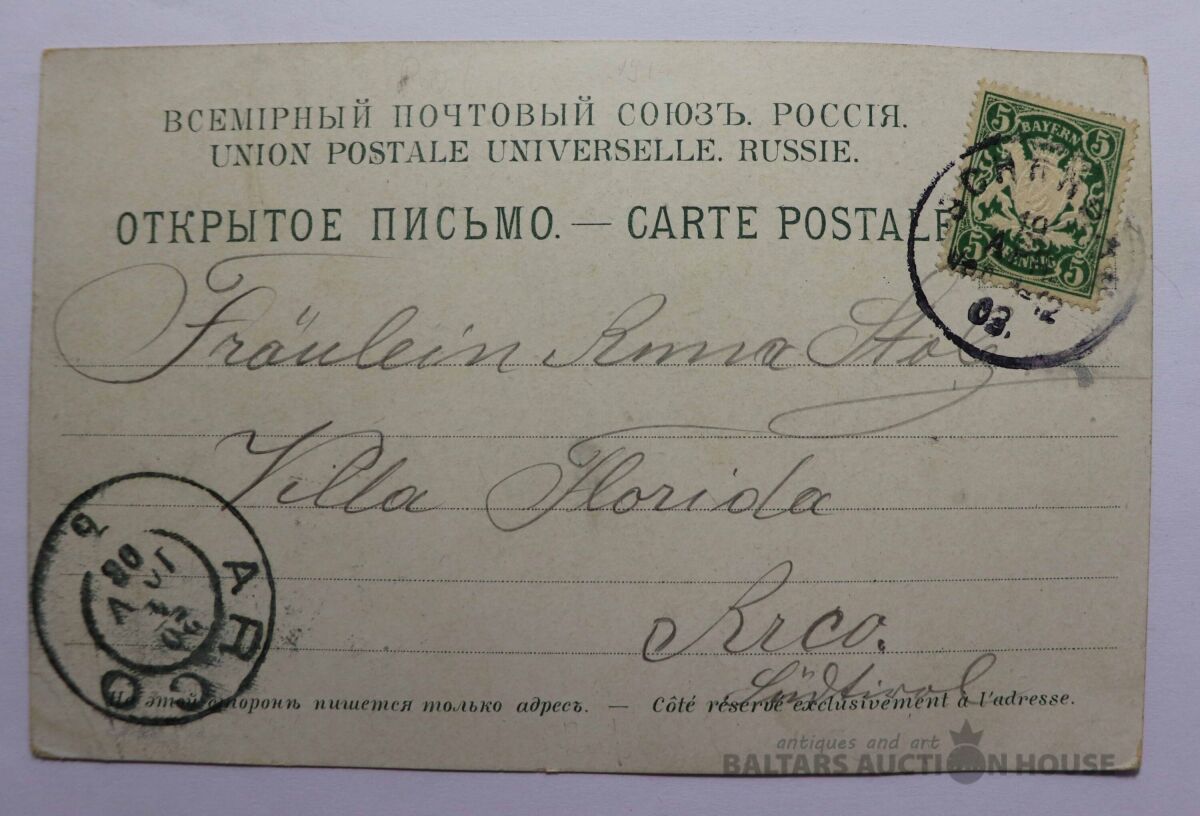 ВСЕМІРНЫЙ ПОЧТОВЫЙ СОЮЗЪ. РОССІЯ.
UNION POSTALE UNIVERSELLE. RUSSIE.
ОТКРЫТОЕ ПИСЬМО. — CARTE POSTALE
5 5
BAYERN
5 5
03.
Fräulein Anna Stolz
Villa Florida
Arco.
Südtirol
ARCO
На этой сторонѣ пишется только адресъ. — Côté réservé exclusivement à l'adresse.
antiques and art
BALTARS AUCTION HOUSE